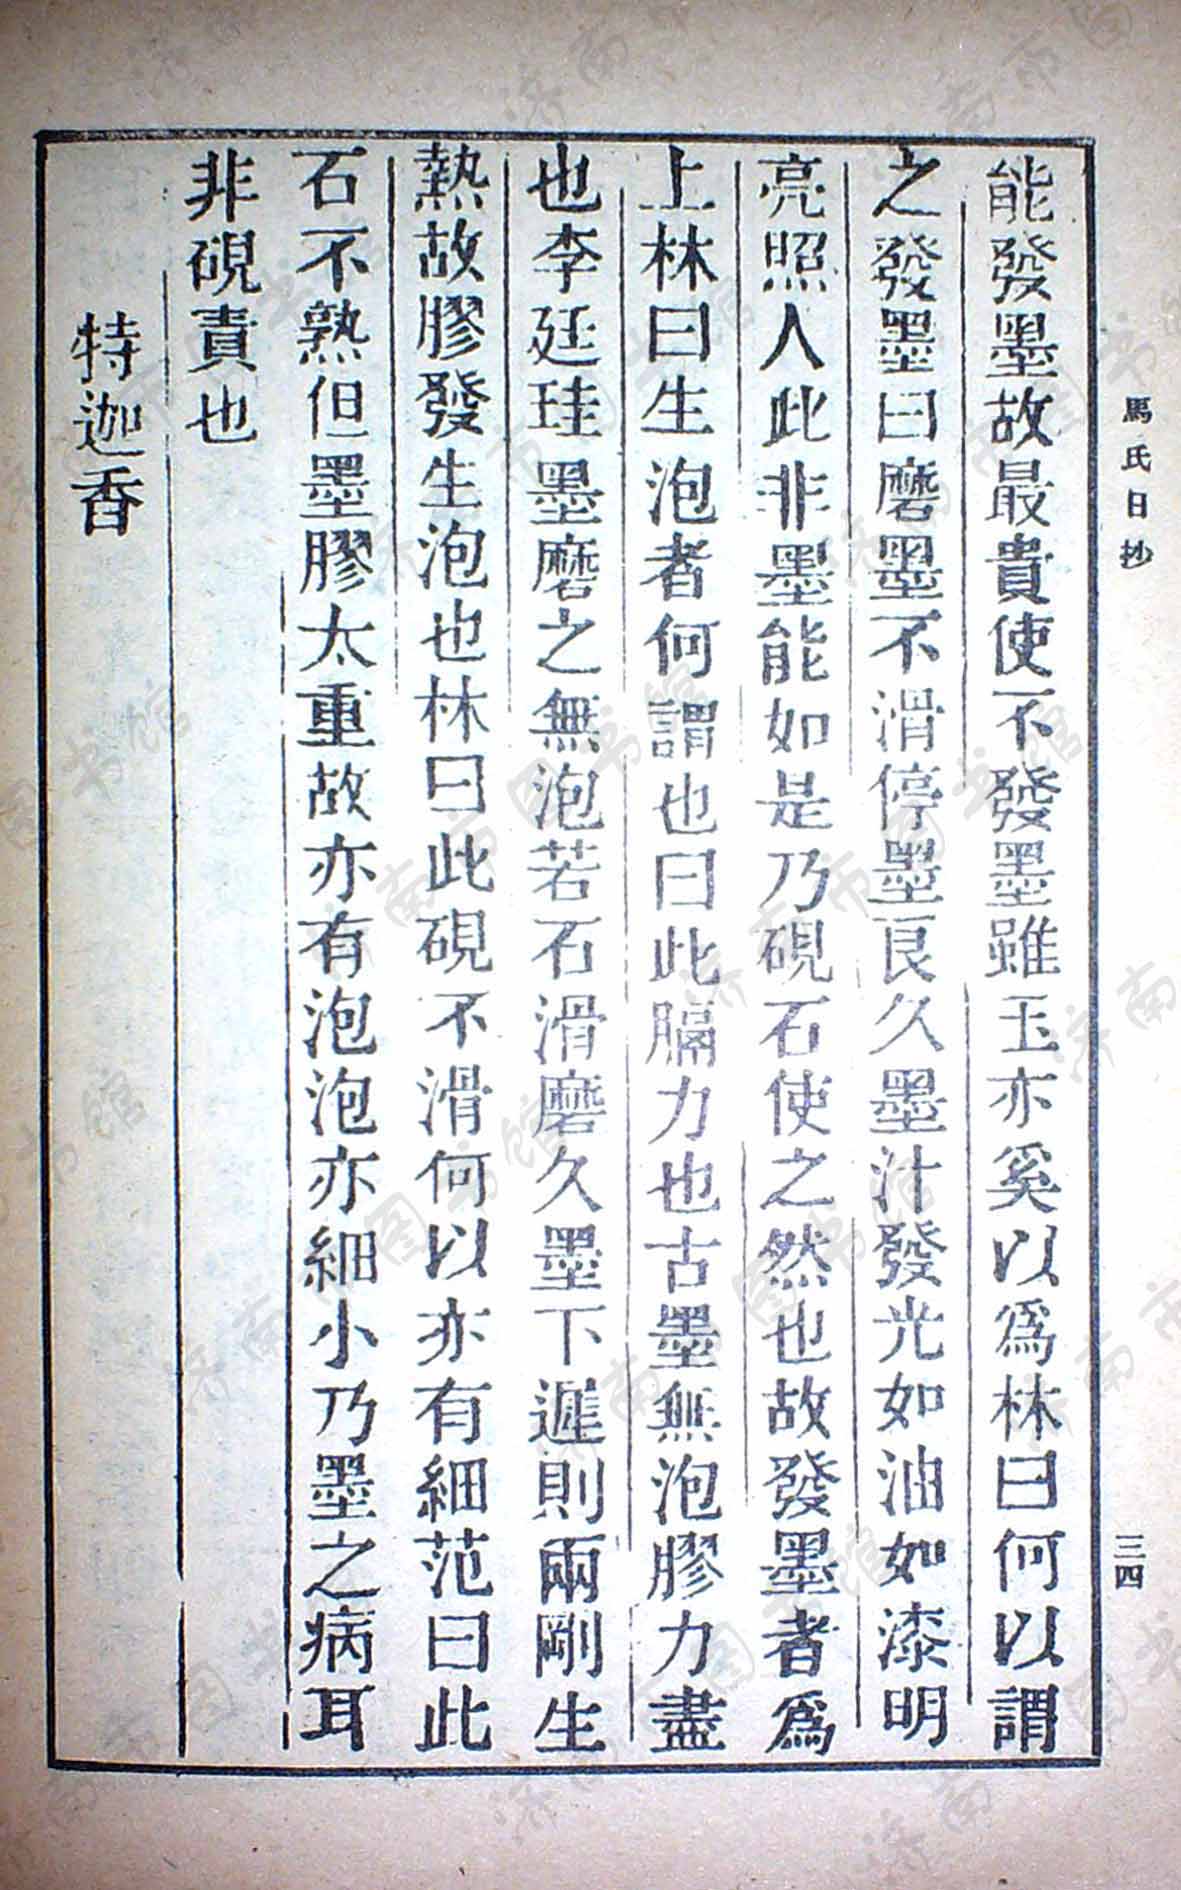 馬氏日抄
能發墨故最貴使不發墨雖玉亦奚以爲林曰何以謂
之發墨曰磨墨不滑停墨良久墨汁發光如油如漆明
亮照人此非墨能如是乃硯石使之然也故發墨者爲
上林曰生泡者何謂也曰此膈力也古墨無泡膠力盡
也李廷珪墨磨之無泡若石滑磨久墨下遲則兩剛生
熱故膠發生泡也林曰此硯不滑何以亦有細范曰此
石不熟但墨膠太重故亦有泡泡亦細小乃墨之病耳
非硯責也
特迦香
三四